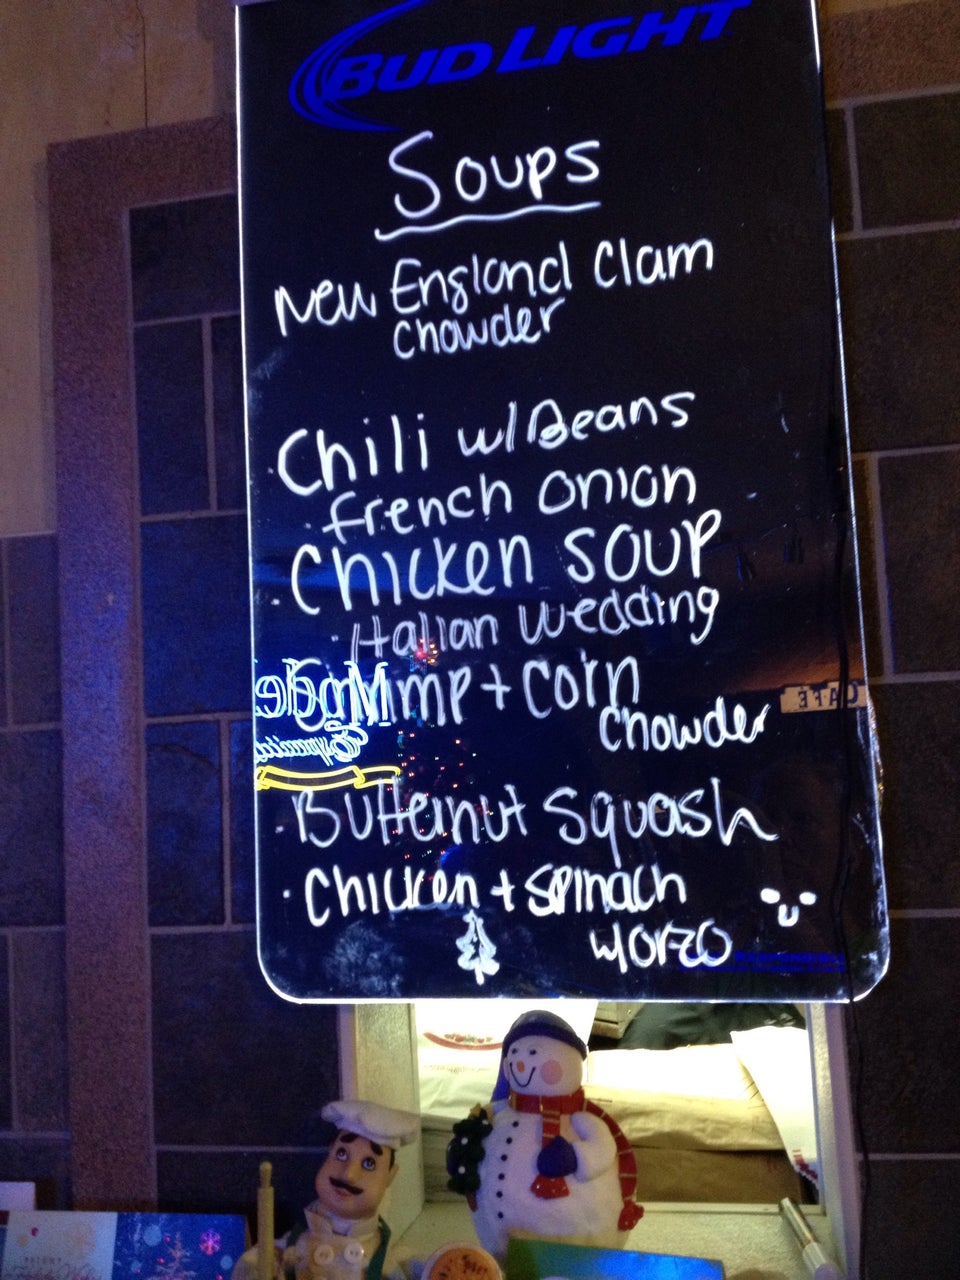 BUD LIGHT
Soups
New England Clam
Chowder
Chili w/Beans
French Onion
Chicken Soup
Italian Wedding
Shrimp + Corn
Chowder
Butternut Squash
Chicken + Spinach
w/orzo
RESPONSIBLY
CAFÉ